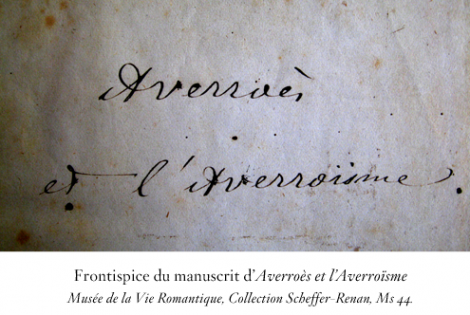 Averroès
et l'Averroïsme.
Frontispice du manuscrit d'Averroès et l'Averroïsme
Musée de la Vie Romantique, Collection Scheffer-Renan, Ms 44.